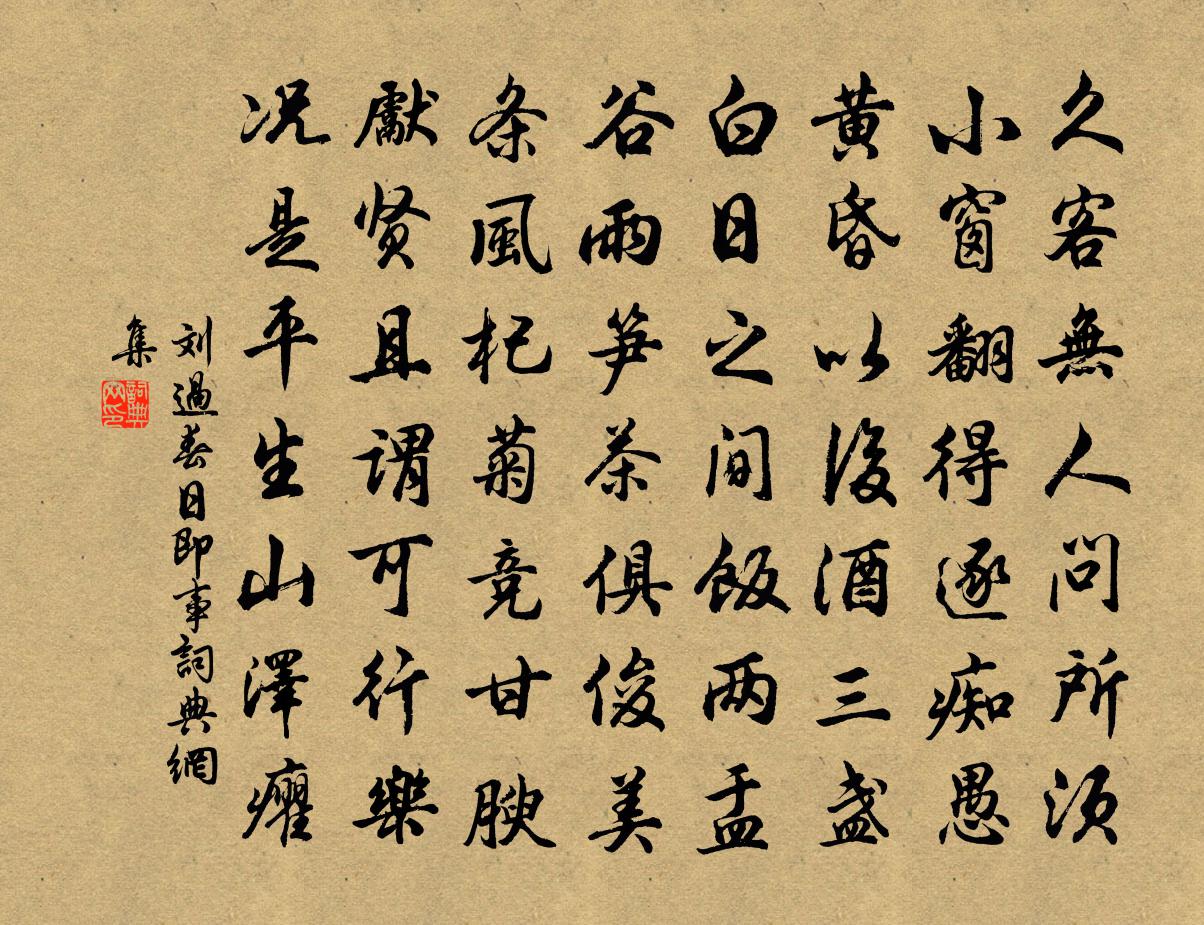 久客無人問所須
小窗翻得逐痴愚
黄昏以後酒三盏
白日之间飯两盂
谷雨笋茶俱俊美
条風杞菊竞甘腴
獻贤且谓可行樂
况是平生山澤癯
刘過春日即事詞典網
集
詞典
网印